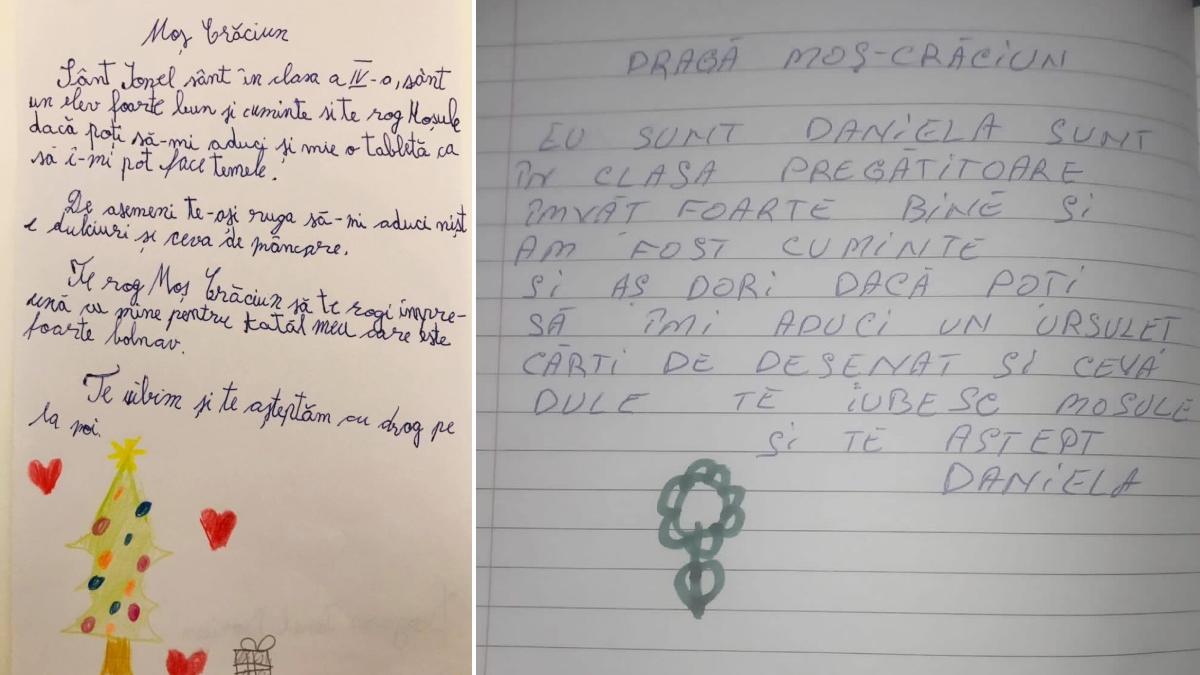 Moș Crăciun
Sânt Ionel sânt în clasa a IV-a, sânt
un elev foarte bun și cuminte si te rog Moșule
dacă poți să-mi aduci și mie o tablită ca
să î-mi pot face temele.
De asemeni te-ași ruga să-mi aduci nișt
e dulciuri și ceva de mâncare.
Te rog Moș Crăciun să te rogi impre-
ună cu mine pentru tatăl meu care este
foarte bolnav.
Te iubim și te așteptăm cu drag pe
la noi.
DRAGĂ MOȘ-CRĂCIUN
EU SUNT DANIELA SUNT
ÎN CLASA PREGĂTITOARE
ÎMVĂT FOARTE BINE ȘI
AM FOST CUMINTE
SI AȘ DORI DACĂ POȚI
SĂ ÎMI ADUCI UN URSULEȚ
CĂRTI DE DESENAT SI CEVA
DULE TE IUBESC MOSULE
ȘI TE ASTEPT
DANIELA